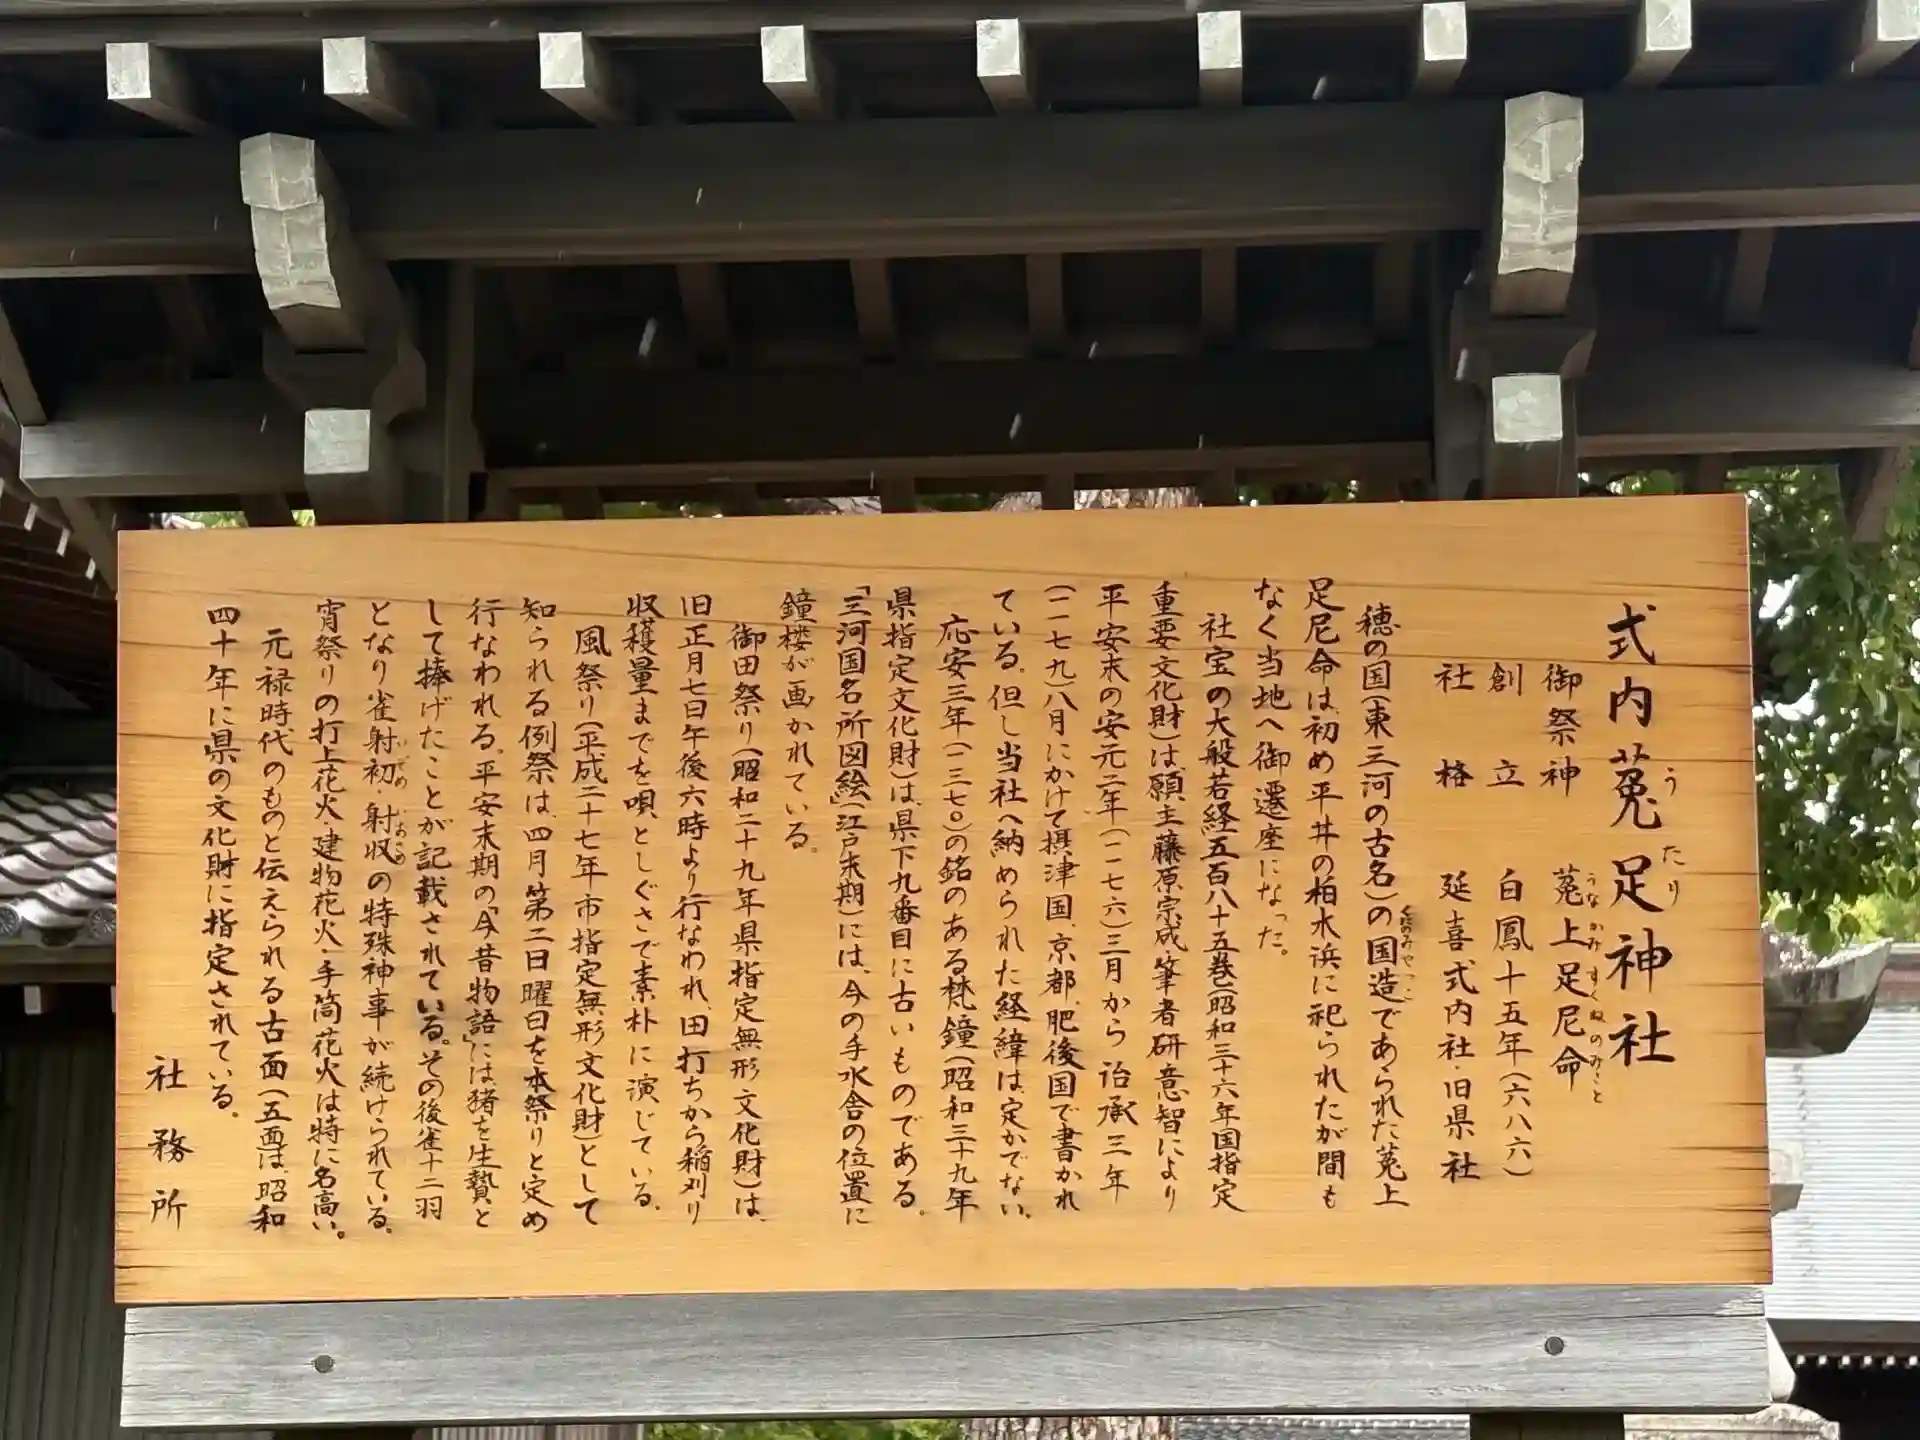 式内菟足神社
うたり
御祭神　菟上足尼命
うなかみすくねのみこと
創立　白鳳十五年(六八六)
社格　延喜式内社・旧県社
穂の国(東三河の古名)の国造であられた菟上
くにのみやつこ
足尼命は、初め平井の柏木浜に祀られたが間も
なく当地へ御遷座になった。
社宝の大般若経五百八十五巻(昭和三十六年国指定
重要文化財)は、願主藤原宗成、筆者研意智により
平安末の安元二年(一一七六)三月から治承三年
(一一七九)八月にかけて摂津国、京都、肥後国で書かれ
ている。但し当社へ納められた経緯は、定かでない。
応安三年(一三七〇)の銘のある梵鐘(昭和三十九年
県指定文化財)は、県下九番目に古いものである。
「三河国名所図絵」(江戸末期)には、今の手水舎の位置に
鐘楼が画かれている。
御田祭り(昭和二十九年県指定無形文化財)は、
旧正月七日午後六時より行なわれ、田打ちから稲刈り
収穫量までを唄としぐさで素朴に演じている。
風祭り(平成二十七年市指定無形文化財)として
知られる例祭は、四月第二日曜日を本祭りと定め
行なわれる。平安末期の「今昔物語」には猪を生贄と
して捧げたことが記載されている。その後雀十二羽
となり雀射初・射収の特殊神事が続けられている。
いぞめ　おさめ
宵祭りの打上花火・建物花火・手筒花火は特に名高い。
元禄時代のものと伝えられる古面(五面)は、昭和
四十年に県の文化財に指定されている。
社務所